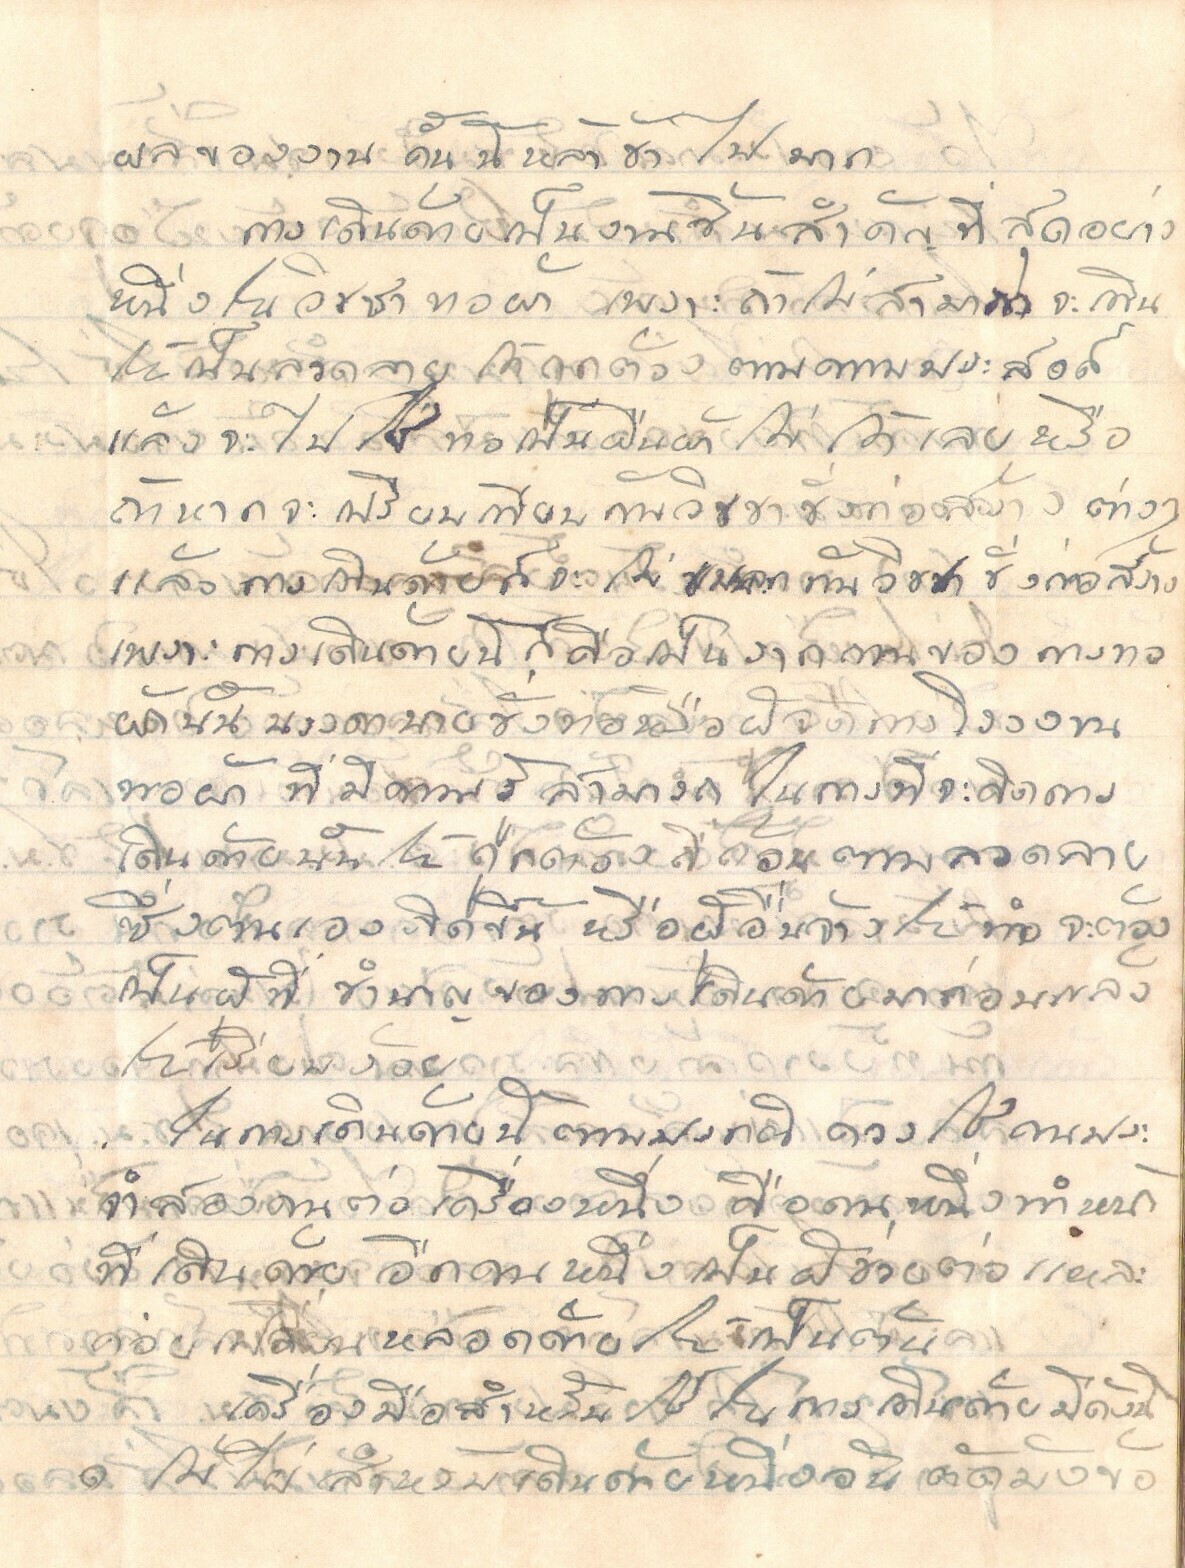 ผลของงานคั้นนี้หล้าช้าไปมาก
การเดินด้ายเป็นงานชิ้นสำคัญที่สุดอย่าง
หนึ่งในวิชชาทอผ้า เพราะถ้าไม่สามารถจะเดิน
ให้เป็นลวดลายได้ถูกต้อง ตามความประสงค์
แล้วจะไป ทอเป็นผืนผ้าไม่ได้เลยหรือ
ถ้าหากจะเปรียบเทียบกับวิชชาช่างก่อสร้างต่างๆ
แล้วการเดินด้ายก็จะไม่ กับวิชชาช่างก่อสร้าง
เพราะการเดินด้ายนี้ก็คือเป็นรากถานของการทอ
ผ้านั้น บรรดานายช่างทอหรือผู้จัดการโรงงาน
ทอผ้า ที่มีความรู้สามารถในการที่จะคิดการ
เดินด้ายนั้นให้ถูกต้อง ตามลวดลาย
ซึ่งตนเองคิดขึ้น หรือผู้อื่นจ้างให้ทำ จะต้อง
เป็นผู้ที่ชำนาญของการเดินด้ายมาก่อนแล้ว
ให้เรียบร้อย
ในการเดินด้ายนี้ตามปรกติ ควรใช้คนประ
จำสองคนต่อเครื่องหนึ่ง คือคนหนึ่งทำหน้า
ที่เดินด้าย อีกคนหนึ่งเป็นผู้ช่วยต่อและ
ค่อยเปลี่ยนหลอดด้ายให้เป็นต้น
เครื่องมือสำหรับใช้ในการเดินด้ายมีดังนี้
๑ ไม้ไผ่สำหรับเดินด้ายหนึ่งอัน